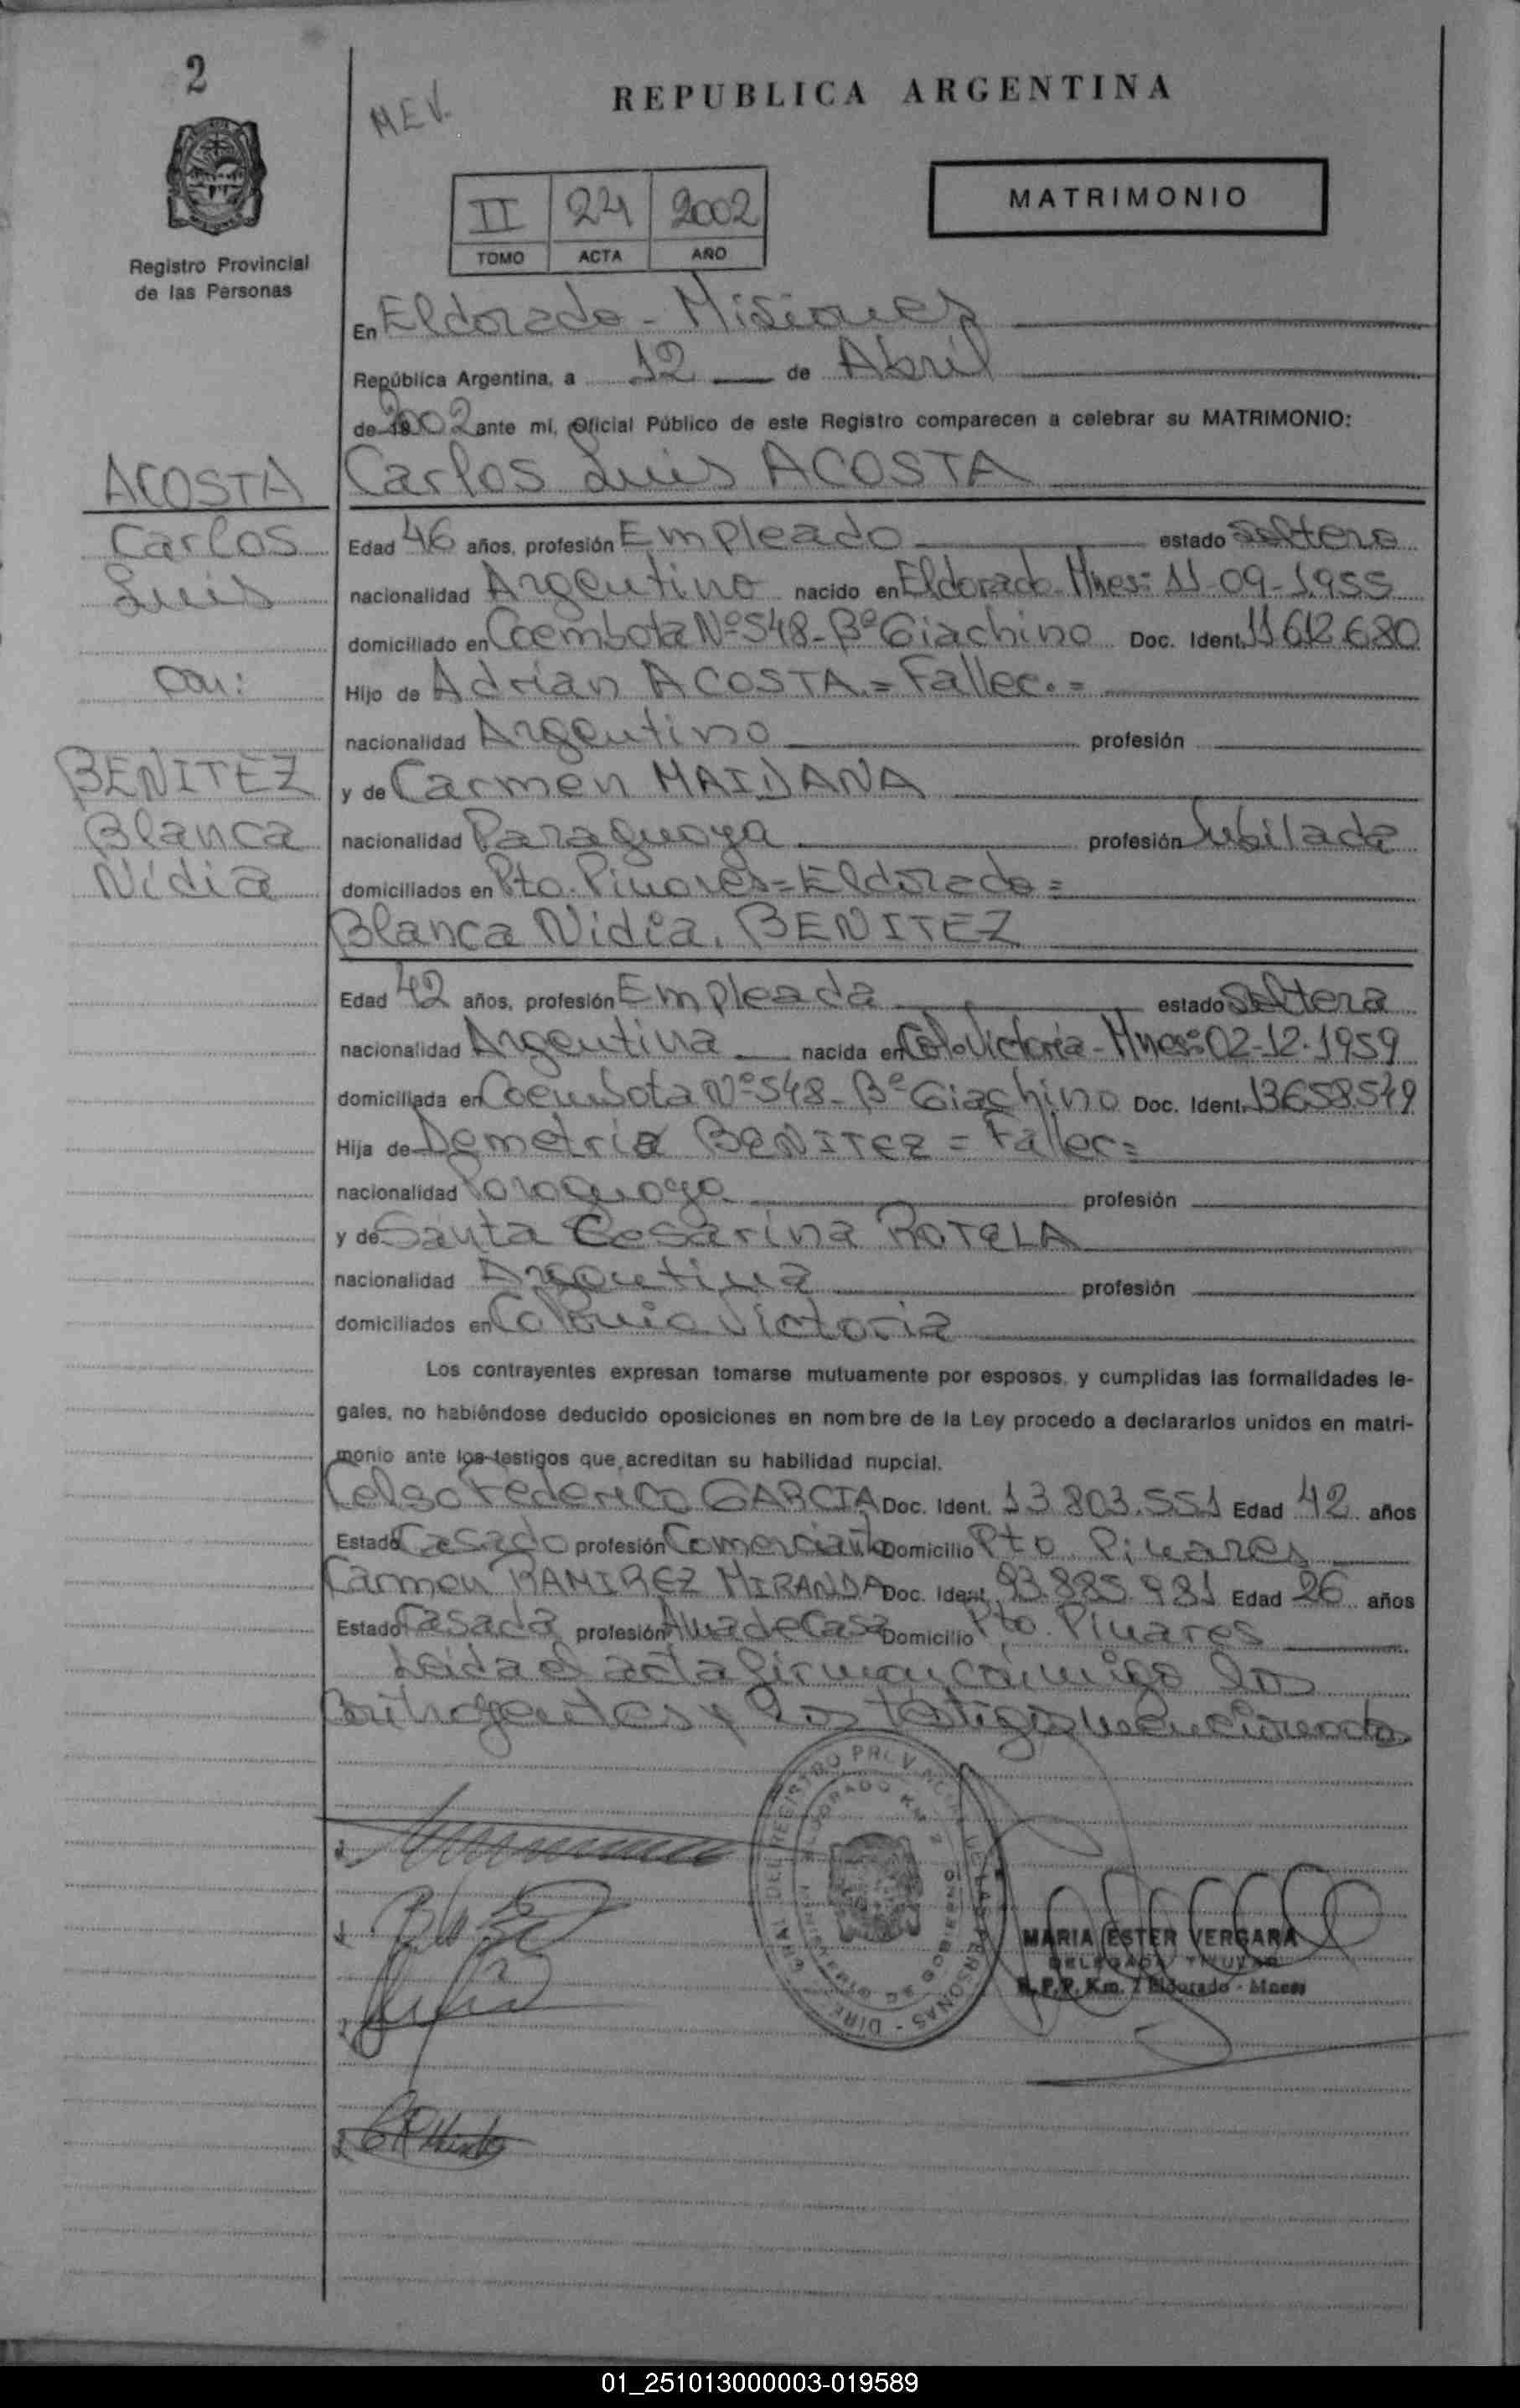 2
REPUBLICA ARGENTINA
M.E.V.
MATRIMONIO
II 24 2002
TOMO ACTA AÑO
Registro Provincial
de las Personas
En Eldorado - Misiones
República Argentina, a 12 de Abril
de 2002 ante mí, Oficial Público de este Registro comparecen a celebrar su MATRIMONIO:
ACOSTA
Carlos
Luis
con:
BENITEZ
Blanca
Nidia
Carlos Luis ACOSTA
Edad 46 años, profesión Empleado estado soltero
nacionalidad Argentino nacido en Eldorado - Mnes= 11-09-1955
domiciliado en Coembota Nº 548 - Bº Giachino Doc. Ident. 11612680
Hijo de Adrian ACOSTA = Fallec. =
nacionalidad Argentino profesión
y de Carmen MAIDANA
nacionalidad Paraguaya profesión Jubilada
domiciliados en Pto. Pinares = Eldorado =
Blanca Nidia. BENITEZ
Edad 42 años, profesión Empleada estado Soltera
nacionalidad Argentina nacida en Col. Victoria - Mnes= 02-12-1959
domiciliada en Coembota Nº 548 - Bº Giachino Doc. Ident. 13658549
Hija de BENITEZ = Fallec =
nacionalidad Paraguaya profesión
y de Santa Cesarina ROTELA
nacionalidad Argentina profesión
domiciliados en Colonia Victoria
Los contrayentes expresan tomarse mutuamente por esposos, y cumplidas las formalidades le-
gales, no habiéndose deducido oposiciones en nombre de la Ley procedo a declararlos unidos en matri-
monio ante los testigos que acreditan su habilidad nupcial.
Celso Federico GARCIA Doc. Ident. 13.803.551 Edad 42 años
Estado Casado profesión Comerciante Domicilio Pto. Pinares
Carmen RAMIREZ MIRANDA Doc. Ident. 93.885.981 Edad 26 años
Estado Casada profesión Ama de Casa Domicilio Pto. Pinares
Leida el acta firman conmigo los
contrayentes y los testigos mencionados
MARIA ESTER VERGARA
DELEGADA TITULAR
R.P.P. Km. 2 Eldorado - Mnes
01_251013000003-019589